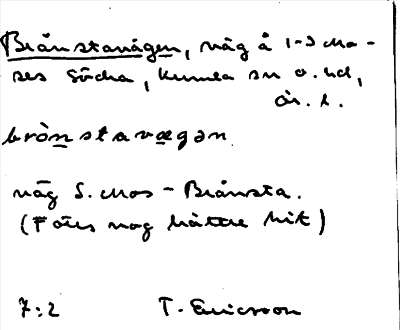 Brånstavägen, väg å 1-3 Mo-
ses Södra, Kumla sn o. hd,
ör. l.
brònstavægən
väg S. Mos - Brånsta.
(Föres nog bättre hit)
7:2 T. Ericsson